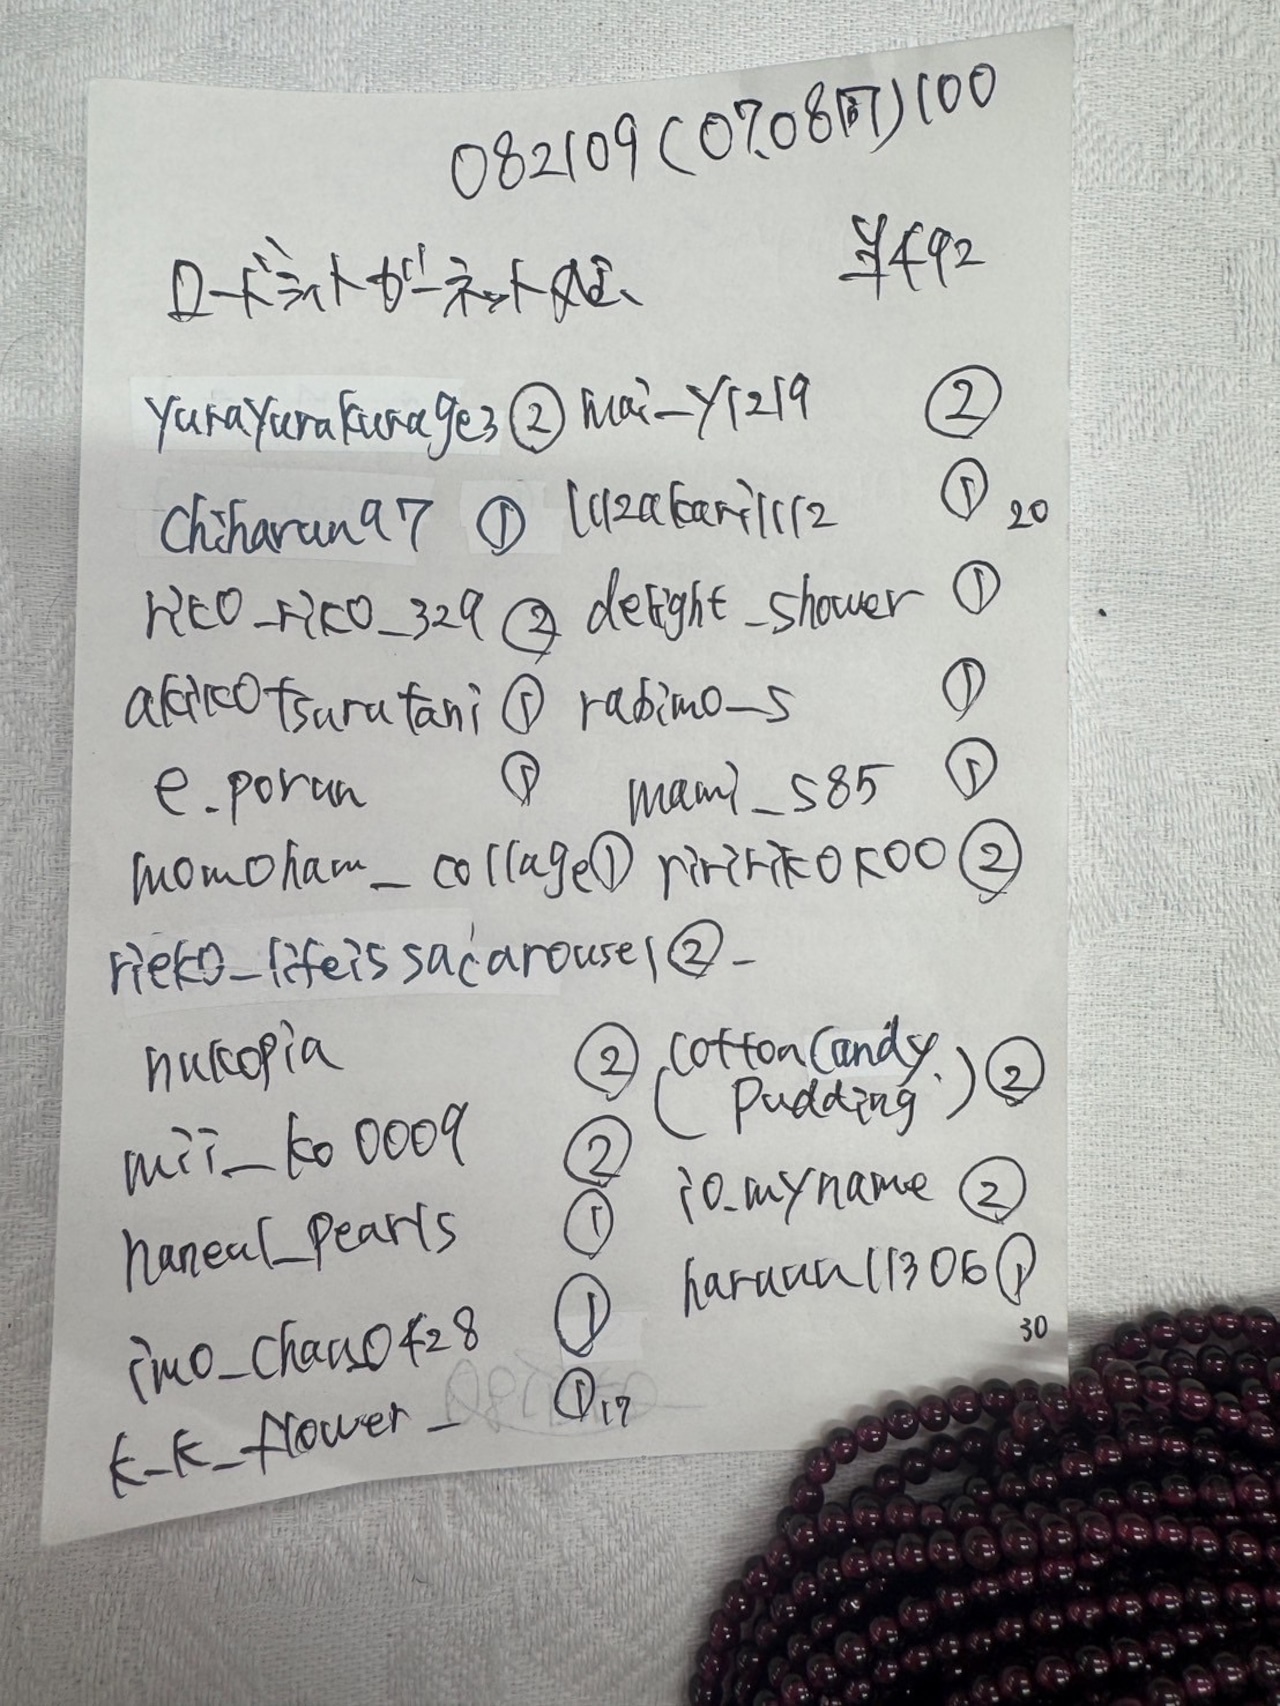 082109 (07.08同) 100
ロードライトガーネット 半492
yurayurakurage3 ② mai_y1219 ②
chiharun97 ① 1112akari1112 ① 20
riko_riko_329 ② delight_shower ①
akikotsurutani ① rabimo_s ①
e.porun ① mami_s85 ①
momoham_collage ① riririkokoo ②
rieko_lifeissacarousel ② -
nukopia ② (cottoncandy.
pudding.) ②
mii_ko0009 ② io.myname ②
haneul_pearls ① haruun11306 ①
imo_chan0428 ① 30
k_k_flower_ ① 17